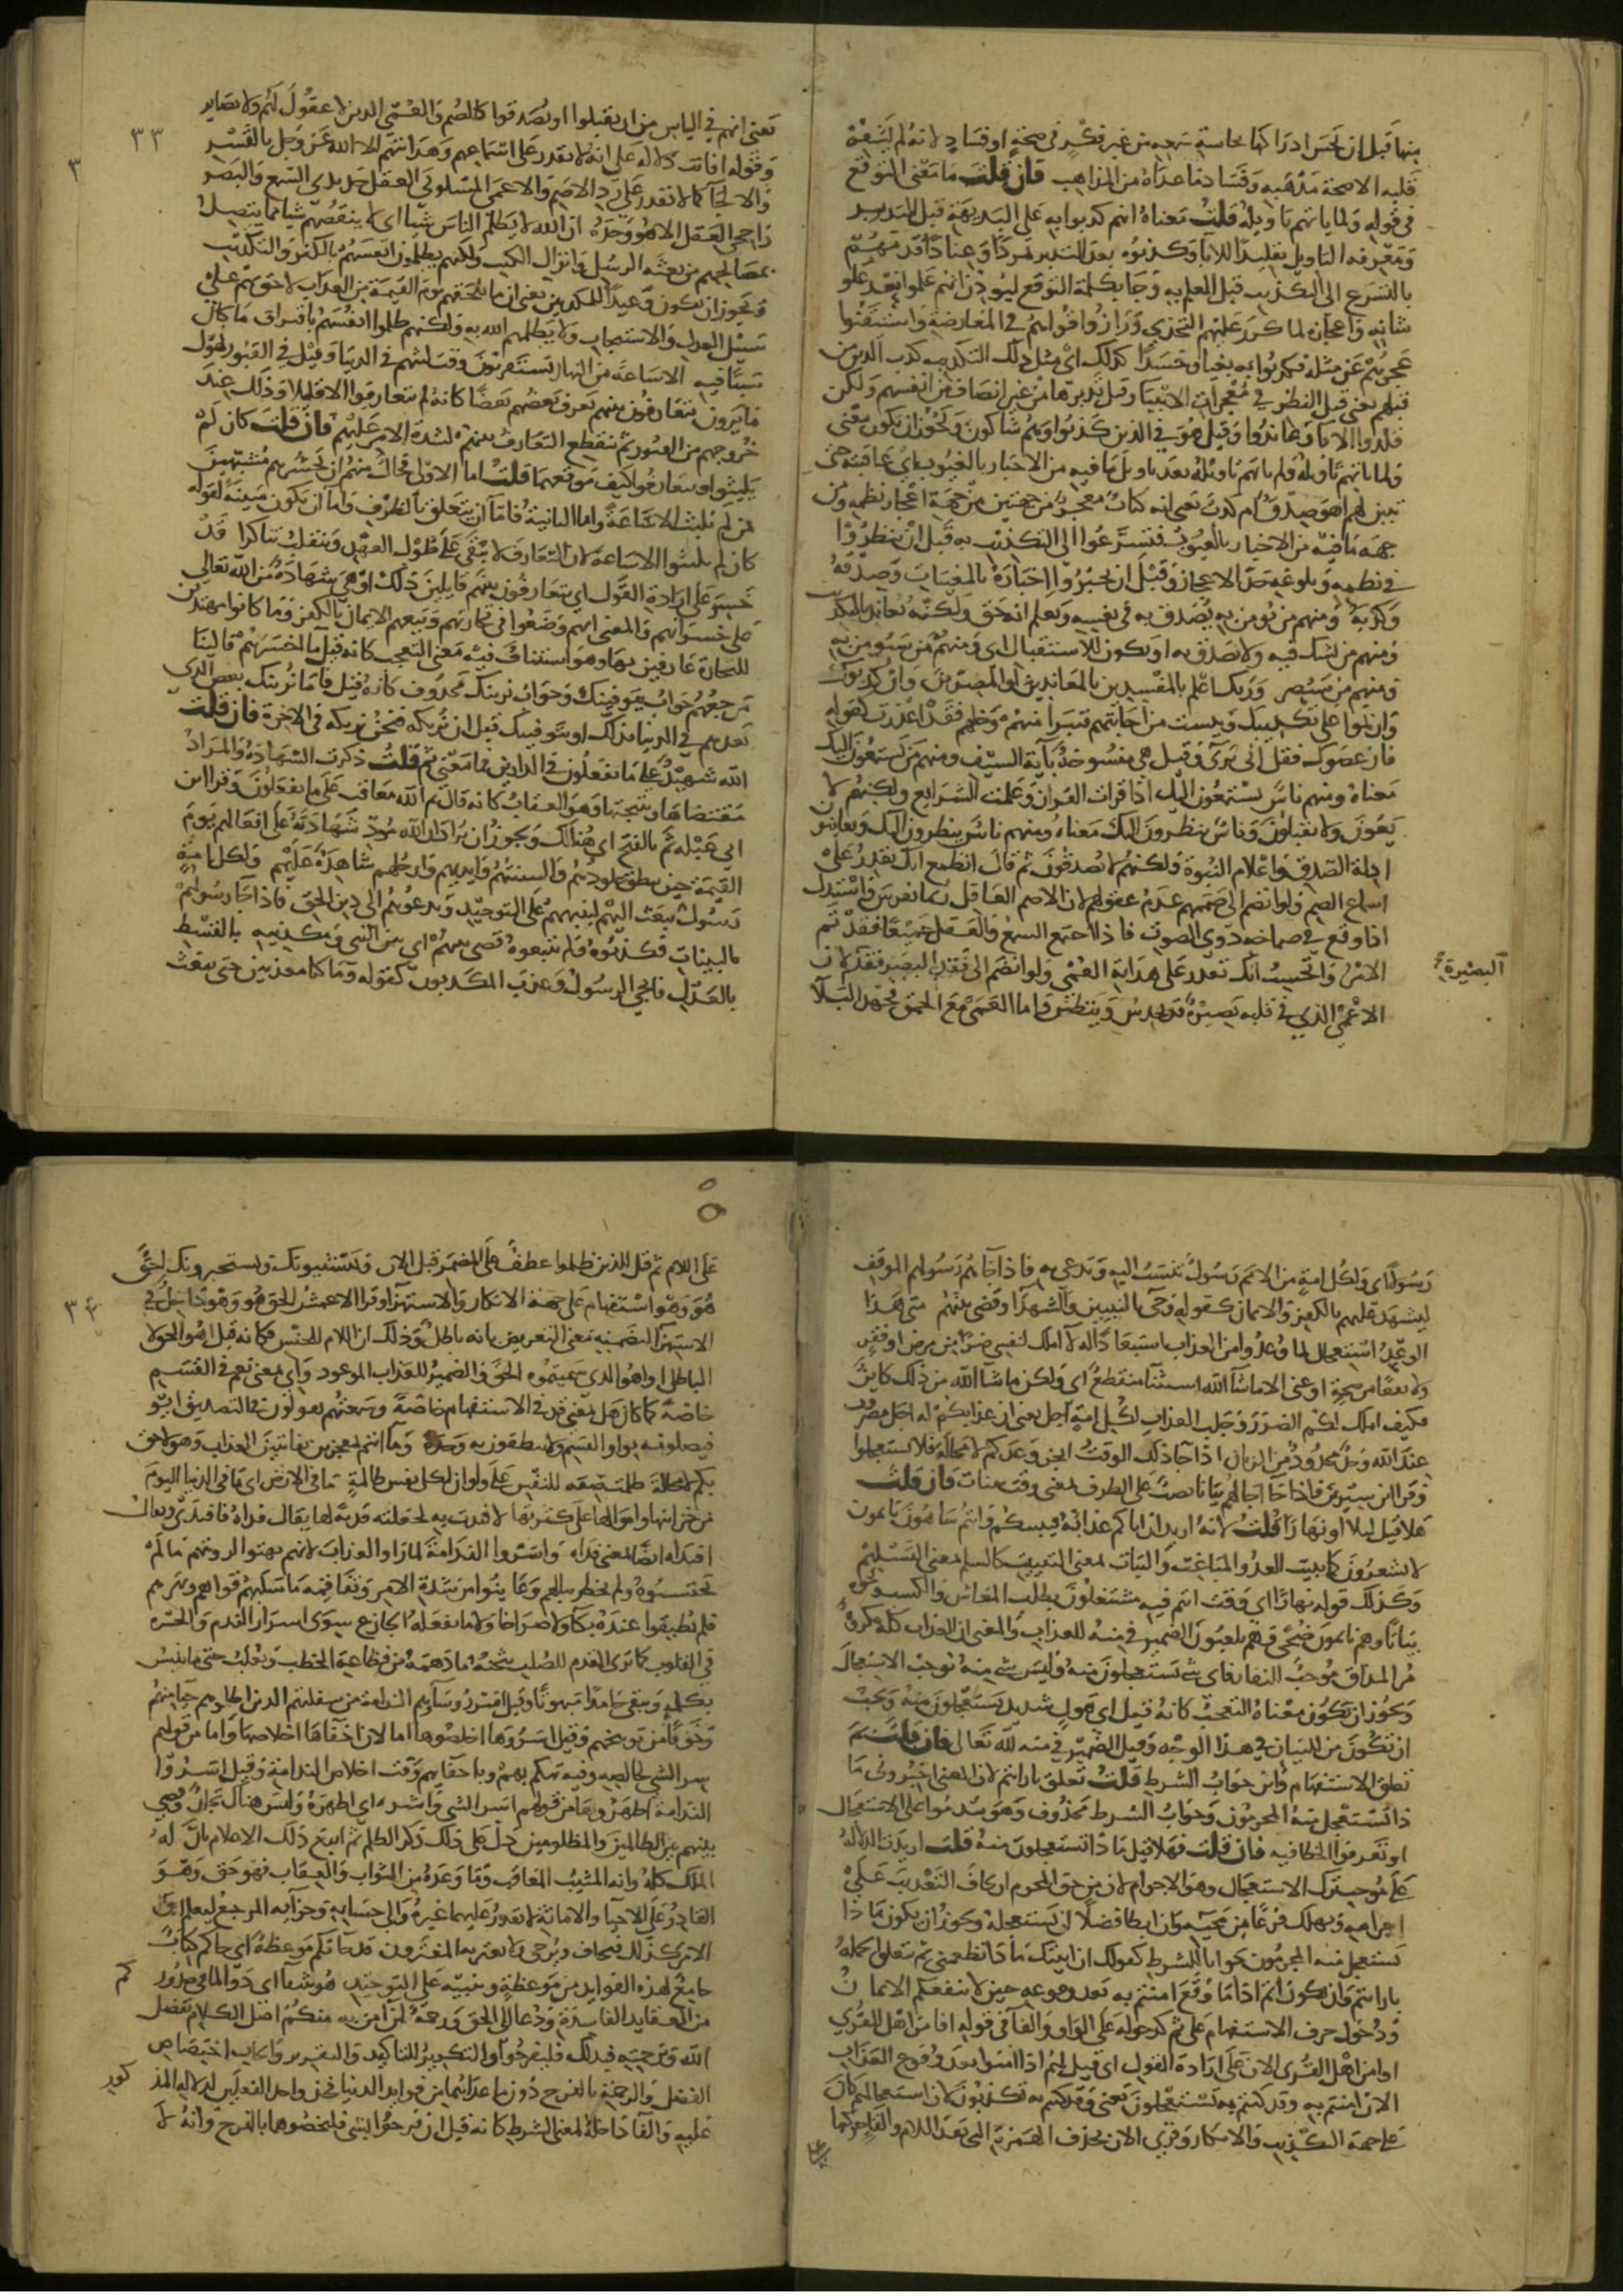 منها قبل ان يحس ادراكها بحاسة سمعه من غير فكر في صحة او فساد لانه لم يشعر
قلبه الا صحة مذهبه وفساد ما عداه من المذاهب فان قلت ما معنى التوقع
في قوله ولما ياتهم تاويله قلت معناه انهم كذبوا به على البديهة قبل التدبر
ومعرفة التاويل تقليدا للابا وكذبوه بعد التدبر تمردا وعنادا فذمهم
بالتسرع الى التكذيب قبل العلم به وجا بكلمة التوقع ليوذن انهم علموا بعد علو
شانه واعجازه لما كرر عليهم التحدي ورازوا قواهم في المعارضة واستيقنوا
عجزهم عن مثله فكذبوا به بغيا وحسدا كذلك اي مثل ذلك التكذيب كذب الذين من
قبلهم يعني قبل النظر في معجزات الانبيا وقبل تدبرها من غير انصاف من انفسهم ولكن
قلدوا الابا وعاندوا وقيل هو في الذين كذبوا وهم شاكون ويجوز ان يكون معنى
ولما ياتهم تاويله ولم ياتهم تاويله بعد تاويل ما فيه من الاخبار بالغيوب اي عاقبته حتى
تبين لهم اهو صدق ام كذب يعني انه كتاب معجز من جهتين من جهة اعجاز نظمه ومن
جهة ما فيه من الاخبار بالغيوب فتسرعوا الى التكذيب به قبل ان ينظروا
في نظمه وبلوغه حد الاعجاز وقبل ان يخبروا اخباره بالمغيبات وصدقه
وكذبه ومنهم من يومن به يصدق به في نفسه ويعلم انه حق ولكنه يعاند بالتكذيب
ومنهم من يشك فيه ولا يصدق به او يكون للاستقبال اي ومنهم من سيومن به
ومنهم من سيصر وربك اعلم بالمفسدين بالمعاندين او المصرين وان كذبوك
وان تموا على تكذيبك ويئست من اجابتهم فتبرا منهم وخلهم فقد اعذرت كقوله
فان عصوك فقل اني بري وقيل هي منسوخة باية السيف ومنهم من يستمعون اليك
معناه ومنهم ناس يستمعون اليك اذا قرات القران وعلمت الشرايع ولكنهم لا
يعون ولا يقبلون وناس ينظرون اليك معناه ومنهم ناس ينظرون اليك ويعاينون
ادلة الصدق واعلام النبوة ولكنهم لا يصدقون ثم قال اتطمع انك تقدر على
اسماع الصم ولو انضم الى صممهم عدم عقولهم لان الاصم العاقل ربما تفرس واستدل
اذا وقع في صماخه دوي الصوت فاذا اجتمع السمع والعقل جميعا فقد تم
الامر واتحسب انك تقدر على هداية العمي ولو انضم الى فقد البصر فقد لان
البصيرة
الاعمى الذي في قلبه بصيرة قد يحدس ويتظنن فاما العمى مع الحمق فجهد البلا
٣٣
٣
يعني انهم في الياس من ان يقبلوا او يصدقوا كالصم والعمي الذين لا عقول لهم ولا بصاير
وقوله افانت دلالة على انه لا يقدر على اسماعهم وهدايتهم الا الله عز وجل بالقسر
والالجا كما لا تقدر على رد الاصم والاعمى المسلوبي العقل حديدي السمع والبصر
راجحي العقل الا هو وحده ان الله لا يظلم الناس شيا اي لا ينقصهم شيا مما يتصل
بمصالحهم من بعثه الرسل وانزال الكتب ولكنهم يظلمون انفسهم بالكفر والتكذيب
ويجوز ان يكون وعيدا للمكذبين يعني ان ما يلحقهم يوم القيمة من العذاب لاحق بهم على
سبيل العدل والاستيجاب ولا يظلمهم الله به ولكنهم ظلموا انفسهم باقتراف ما كان
سببا فيه الا ساعة من النهار يستقربون وقت لبثهم في الدنيا وقيل في القبور لهول
ما يرون يتعارفون بينهم يعرف بعضهم بعضا كانهم لم يتعارفوا الا قليلا وذلك عند
خروجهم من القبور ثم ينقطع التعارف بينهم لشدة الامر عليهم فان قلت كان لم
يلبثوا ويتعارفوا كيف موقعهما قلت اما الاولى فحال منهم ان نحشرهم مشبهين
بمن لم يلبث الا ساعة واما الثانية فاما ان يتعلق بالظرف واما ان يكون مبينة لقوله
كان لم يلبثوا الا ساعة لان التعارف لا يبقى على طول العهد وينقلب تناكرا قد
خسر على ارادة القول اي يتعارفون بينهم قايلين ذلك او هي شهادة من الله تعالى
على خسرانهم والمعنى انهم وضعوا في تجارتهم وبيعهم الايمان بالكفر وما كانوا مهتدين
للتجارة عارفين بها وهو استيناف فيه معنى التعجب كانه قيل ما اخسرهم فالينا
مرجعهم جواب نتوفينك وجواب نرينك محذوف كانه قيل فاما نرينك بعض الذي
نعدهم في الدنيا فذاك او نتوفينك قبل ان نريكه فنحن نريكه في الاخرة فان قلت
الله شهيد على ما يفعلون في الدارين فما معنى ثم قلت ذكرت الشهادة والمراد
مقتضاها ونتيجتها وهو العقاب كانه قال ثم الله معاقب على ما يفعلون وقرا ابن
ابي عبلة ثم بالفتح اي هنالك ويجوز ان يراد ان الله مود شهادته على افعالهم يوم
القيمة حين ينطق جلودهم والسنتهم وايديهم وارجلهم شاهدة عليهم ولكل امة
رسول يبعث اليهم لينبههم على التوحيد ويدعوهم الى دين الحق فاذا جا رسولهم
بالبينات فكذبوه ولم يتبعوه قضى بينهم اي بين النبي ومكذبيه بالقسط
بالعدل فانجي الرسول وعذب المكذبون كقوله وما كنا معذبين حتى نبعث
رسولا اي ولكل امة من الامم رسول تنسب اليه وتدعى به فاذا جاهم رسولهم الموقف
ليشهد عليهم بالكفر والايمان كقوله وجي بالنبيين والشهدا وقضى بينهم متى هذا
الوعد استعجال لما وعدوا من العذاب استبعادا له لا املك لنفسي ضرا من مرض او فقر
ولا نفعا من صحة او غنى الا ما شا الله استثنا منقطع اي ولكن ما شا الله من ذلك كاين
فكيف املك لكم الضرر وجلب العذاب لكل امة اجل يعني ان عذابكم له اجل مضروب
عند الله وحد محدود من الزمان اذا جا ذلك الوقت انجز وعدكم لا محالة فلا تستعجلوا
وقرا ابن سيرين فاذا جا اجالهم بياتا نصب على الظرف بمعنى وقت بيات فان قلت
هلا قيل ليلا او نهارا قلت لانه اريد ان اتاكم عذابه فيبيتكم وانتم ساهون نايمون
لا تشعرون كما يبيت العدو المباغت والبيات بمعنى التبييت كالسلام بمعنى التسليم
وكذلك قوله نهارا اي وقت انتم فيه مشتغلون بطلب المعاش والكسب ونحوه
بياتا وهم نايمون ضحى وهم يلعبون الضمير في منه للعذاب والمعنى ان العذاب كله مكروه
مر المذاق موجب النفار فاي شي تستعجلون منه وليس شي منه توجب الاستعجال
ويجوز ان يكون معناه التعجب كانه قيل اي هول شديد يستعجلون منه ويجب
ان تكون من للبيان في هذا الوجه وقيل الضمير في منه لله تعالى فان قلت بم
تعلق الاستفهام واين جواب الشرط قلت تعلق بارايتم لان المعنى اخبروني ما
ذا يستعجل منه المجرمون وجواب الشرط محذوف وهو تندموا على الاستعجال
او تعرفوا الخطا فيه فان قلت فهلا قيل ماذا تستعجلون منه قلت اريدت الدلالة
على موجب ترك الاستعجال وهو الاجرام لان من حق المجرم ان يخاف التعذيب على
اجرامه ويهلك فزعا من مجيه وان ابطا فضلا ان يستعجله ويجوز ان يكون ماذا
يستعجل منه المجرمون جوابا للشرط كقولك ان اتيتك ماذا تطعمني ثم تتعلق الجملة
بارايتم وان يكون اثم اذا ما وقع امنتم به بعد وقوعه حين لا ينفعكم الايمان
ودخول حرف الاستفهام على ثم كدخوله على الواو والفا في قوله افامن اهل القرى
اوامن اهل القرى الان على ارادة القول اي قيل لهم اذا امنوا بعد وقوع العذاب
الان امنتم به وقد كنتم به تستعجلون يعني وقد كنتم به تكذبون لان استعجالهم كان
على جهة التكذيب والانكار وقري الان بحذف الهمزة التي بعد اللام والقا حركتها
٣٤
على اللام ثم قيل للذين ظلموا عطف على المضمر قبل الان ويستنبونك ويستخبرونك احق
هو وهو استفهام على جهة الانكار والاستهزا وقرا الاعمش الحق هو وهو داخل في
الاستهزا لتضمنه معنى التعريض بانه باطل وذلك ان اللام للجنس فكانه قيل اهو الحق لا
الباطل او اهو الذي سميتموه الحق والضمير للعذاب الموعود واي بمعنى نعم في القسم
خاصة كما كان هل بمعنى قد في الاستفهام خاصة وسمعتهم يقولون في التصديق ايو
فيصلونه بواو القسم ولا ينطقون به وحده وما انتم بمعجزين بفايتين العذاب وهو لاحق
بكم لا محالة ظلمت صفة للنفس على ولو ان لكل نفس ظالمة ما في الارض اي ما في الدنيا اليوم
من خزاينها واموالها على كثرتها لافتدت به لجعلته فدية لها يقال فداه فافتدى ويقال
افتداه ايضا بمعنى فداه واسروا الندامة لما راوا العذاب لانهم بهتوا لرويتهم ما لم
يحتسبوه ولم يخطر ببالهم وعاينوا من شدة الامر وتفاقمه ما سلبهم قواهم وبهرهم
فلم يطيقوا عنده بكا ولا صراخا ولا ما يفعله الجازع سوى اسرار الندم والحسرة
في القلوب كما ترى المقدم للصلب يثخنه ما دهمه من فظاعة الخطب ويغلب حتى لا ينبس
بكلمة ويبقى جامدا مبهوتا وقيل اسر روساهم الندامة من سفلتهم الذين اضلوهم حيا منهم
وخوفا من توبيخهم وقيل اسروها اخلصوها اما لان اخفاها اخلاصها واما من قولهم
سر الشي لخالصه وفيه تهكم بهم وباخطايهم وقت اخلاص الندامة وقيل اسروا
الندامة اظهروها من قولهم اسر الشي واشره اي اظهره وليس هناك تجلد وقضي
بينهم بين الظالمين والمظلومين دل على ذلك ذكر الظلم ثم اتبع ذلك الاعلام بان له
الملك كله وانه المثيب المعاقب وما وعده من الثواب والعقاب فهو حق وهو
القادر على الاحيا والاماتة لا يقدر عليهما غيره والى حسابه وجزايه المرجع ليعلم ان
الامر كذلك فيخاف ويرجى ولا يغتر به المغترون قد جاتكم موعظة اي جاكم كتاب
جامع لهذه الفوايد من موعظة وتنبيه على التوحيد هو شفا اي دوا لما في صدوركم
من العقايد الفاسدة ودعا الى الحق ورحمة لمن امن به منكم اصل الكلام بفضل
الله وبرحمته فبذلك فليفرحوا والتكرير للتاكيد والتقرير وايجاب اختصاص
الفضل والرحمة بالفرح دون ما عداهما من فوايد الدنيا فحذف احد الفعلين لدلالة المذكور
عليه والفا داخلة لمعنى الشرط كانه قيل ان فرحوا بشي فليخصوهما بالفرح وانه لا